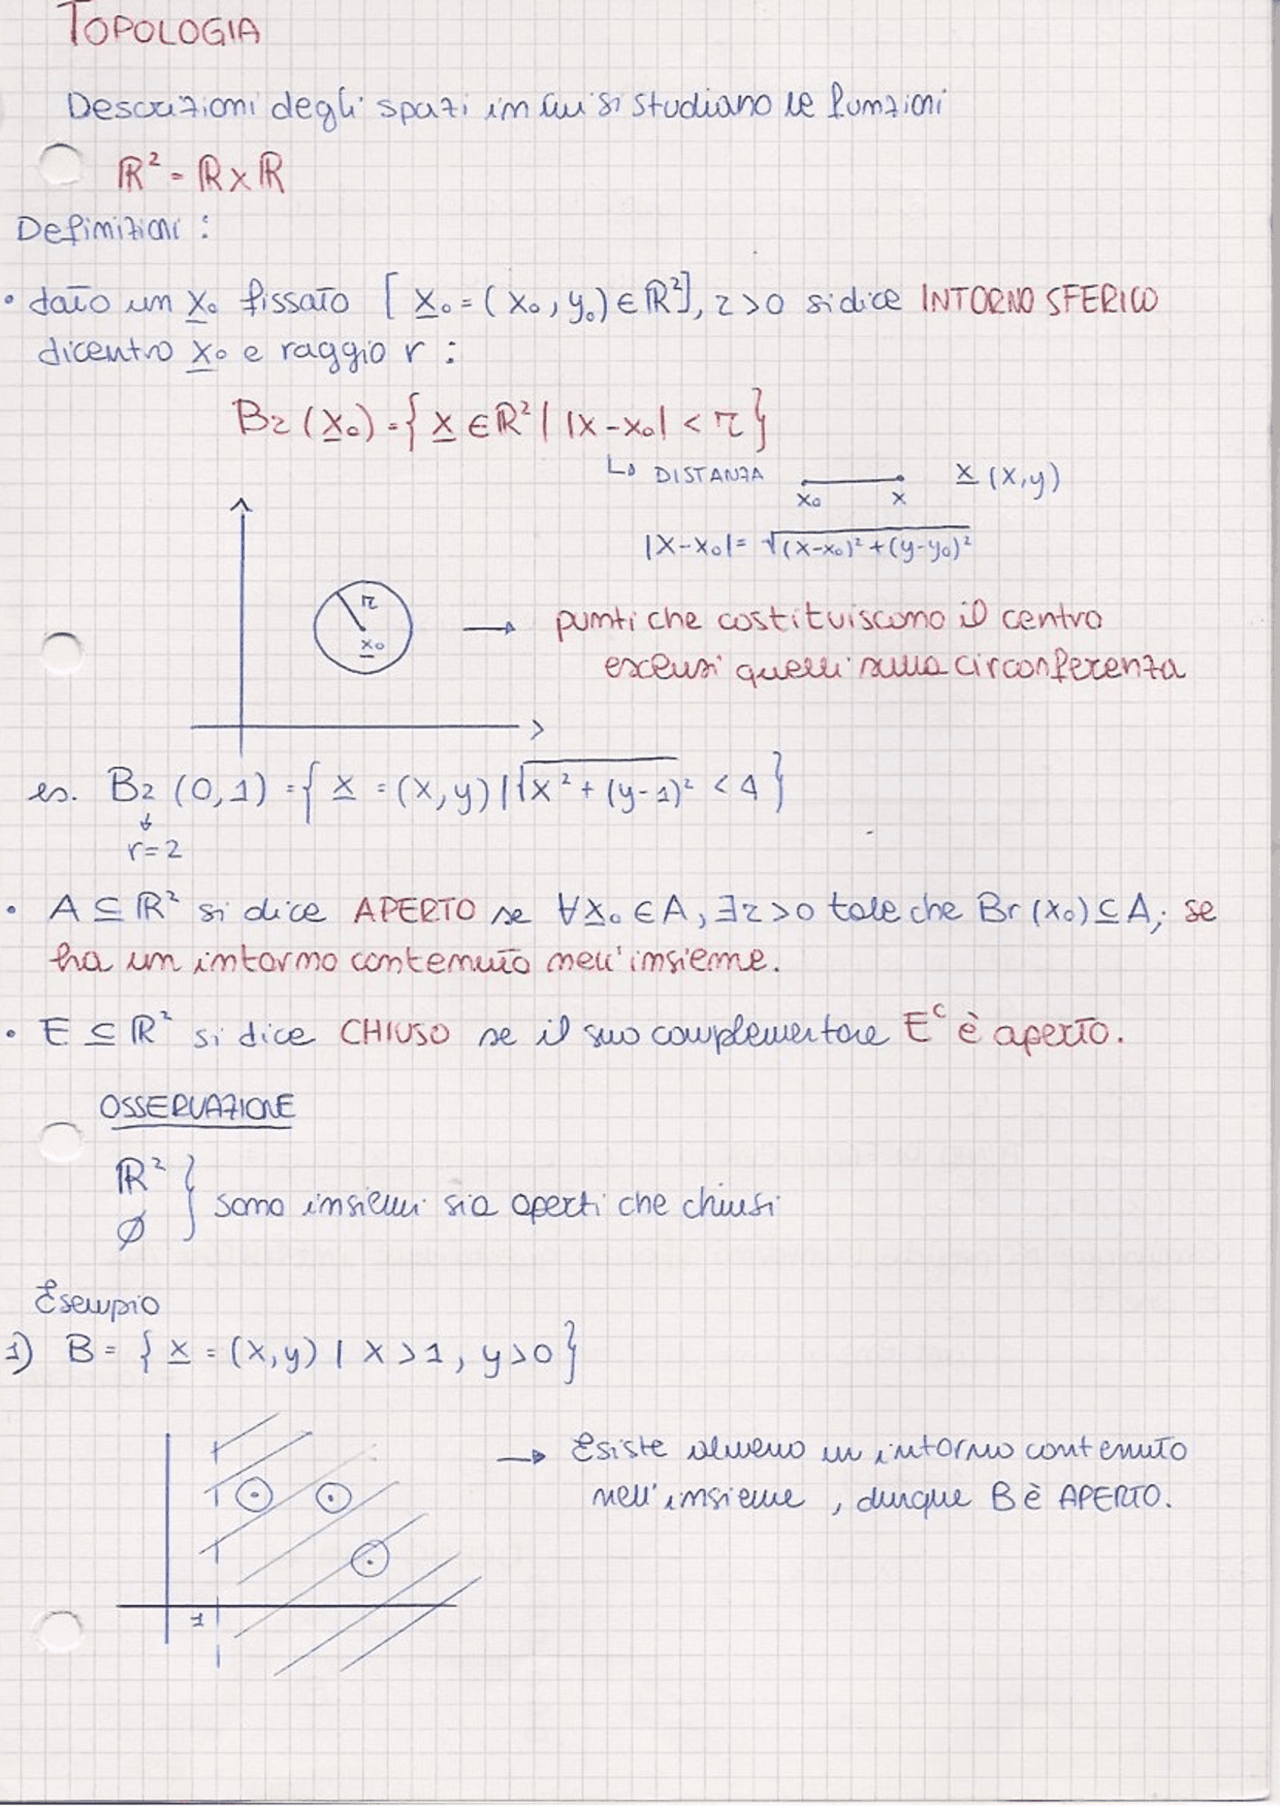 TOPOLOGIA
Descrizioni degli spazi in cui si studiano le funzioni
ℝ² = ℝ x ℝ
Definizioni :
• dato un x̲₀ fissato [ x̲₀ = ( x₀ , y₀ ) ∈ ℝ² ], r > 0 si dice INTORNO SFERICO
di centro x̲₀ e raggio r :
Br ( x̲₀ ) = { x̲ ∈ ℝ² | |x - x₀| < r }
↳ DISTANZA x₀ x x̲ (x,y)
|x-x₀| = √(x-x₀)² + (y-y₀)²
r
x̲₀
→ punti che costituiscono il centro
esclusi quelli sulla circonferenza
es. B₂ (0,1) = { x̲ = (x,y) | √x² + (y-1)² < 4 }
↓
r = 2
• A ⊆ ℝ² si dice APERTO se ∀ x̲₀ ∈ A , ∃ r > 0 tale che Br (x₀) ⊆ A ; se
ha un intorno contenuto nell'insieme.
• E ⊆ ℝ² si dice CHIUSO se il suo complementare Eᶜ è aperto.
OSSERVAZIONE
ℝ²
∅ } sono insiemi sia aperti che chiusi
Esempio
1) B = { x̲ = (x,y) | x > 1 , y > 0 }
→ Esiste almeno un intorno contenuto
nell'insieme , dunque B è APERTO.
1